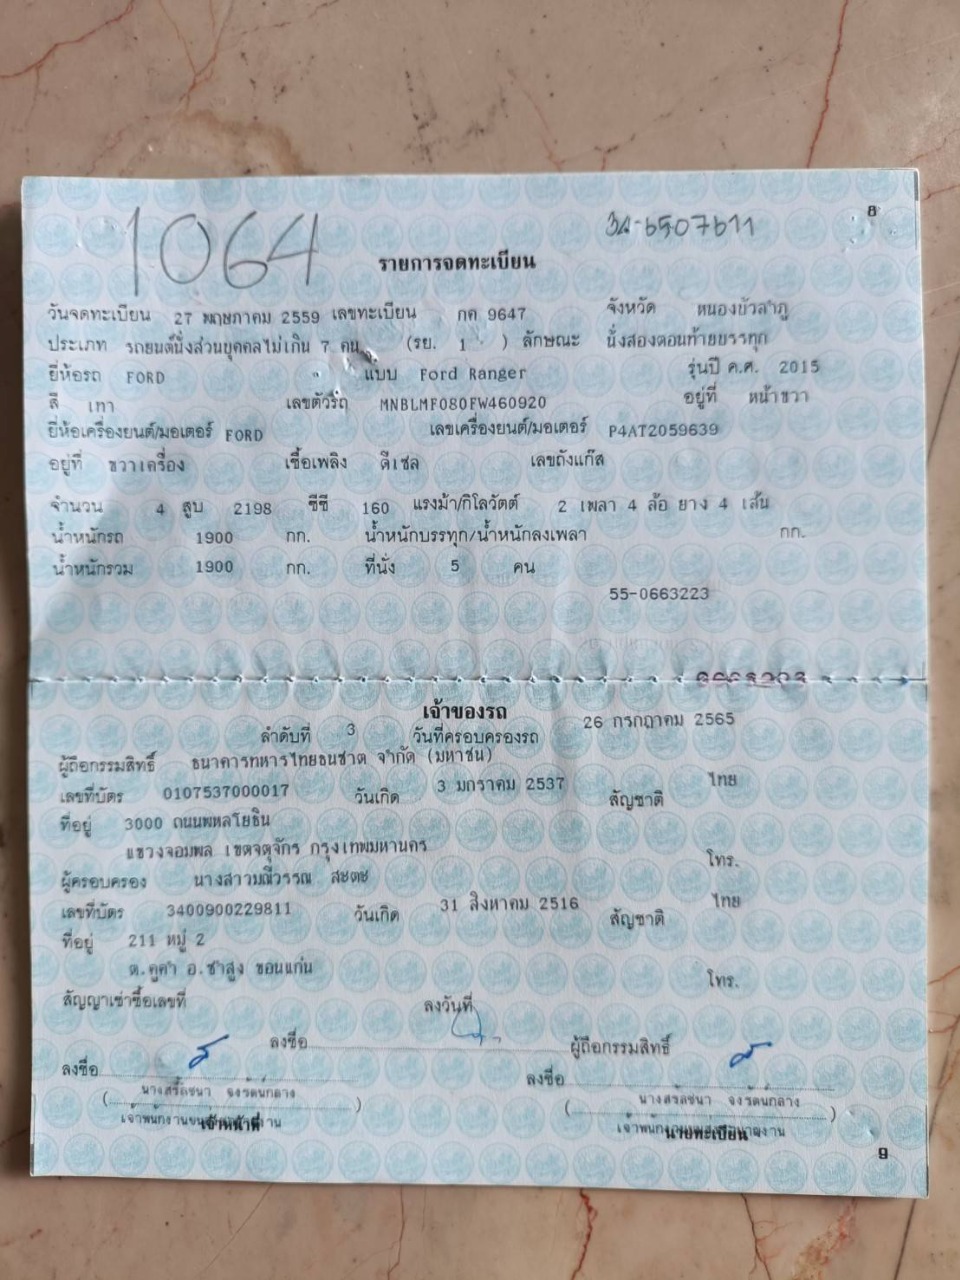 8
1064
34-6507611
รายการจดทะเบียน
วันจดทะเบียน 27 พฤษภาคม 2559 เลขทะเบียน กค 9647 จังหวัด หนองบัวลำภู
ประเภท รถยนต์นั่งส่วนบุคคลไม่เกิน 7 คน (รย. 1 ) ลักษณะ นั่งสองตอนท้ายบรรทุก
ยี่ห้อรถ FORD แบบ Ford Ranger รุ่นปี ค.ศ. 2015
สี เทา เลขตัวรถ MNBLMF080FW460920 อยู่ที่ หน้าขวา
ยี่ห้อเครื่องยนต์/มอเตอร์ FORD เลขเครื่องยนต์/มอเตอร์ P4AT2059639
อยู่ที่ ขวาเครื่อง เชื้อเพลิง ดีเซล เลขถังแก๊ส
จำนวน 4 สูบ 2198 ซีซี 160 แรงม้า/กิโลวัตต์ 2 เพลา 4 ล้อ ยาง 4 เส้น
น้ำหนักรถ 1900 กก. น้ำหนักบรรทุก/น้ำหนักลงเพลา กก.
น้ำหนักรวม 1900 กก. ที่นั่ง 5 คน
55-0663223
เจ้าของรถ
ลำดับที่ 3 วันที่ครอบครองรถ 26 กรกฎาคม 2565
ผู้ถือกรรมสิทธิ์ ธนาคารทหารไทยธนชาต จำกัด (มหาชน)
เลขที่บัตร 0107537000017 วันเกิด 3 มกราคม 2537 สัญชาติ ไทย
ที่อยู่ 3000 ถนนพหลโยธิน
แขวงจอมพล เขตจตุจักร กรุงเทพมหานคร โทร.
ผู้ครอบครอง นางสาวมณีวรรณ สะตะ
เลขที่บัตร 3400900229811 วันเกิด 31 สิงหาคม 2516 สัญชาติ ไทย
ที่อยู่ 211 หมู่ 2
ต.คูคำ อ.ซำสูง ขอนแก่น โทร.
สัญญาเช่าซื้อเลขที่ ลงวันที่
ลงชื่อ ผู้ถือกรรมสิทธิ์
ลงชื่อ ลงชื่อ
เจ้าหน้าที่ นายทะเบียน
9